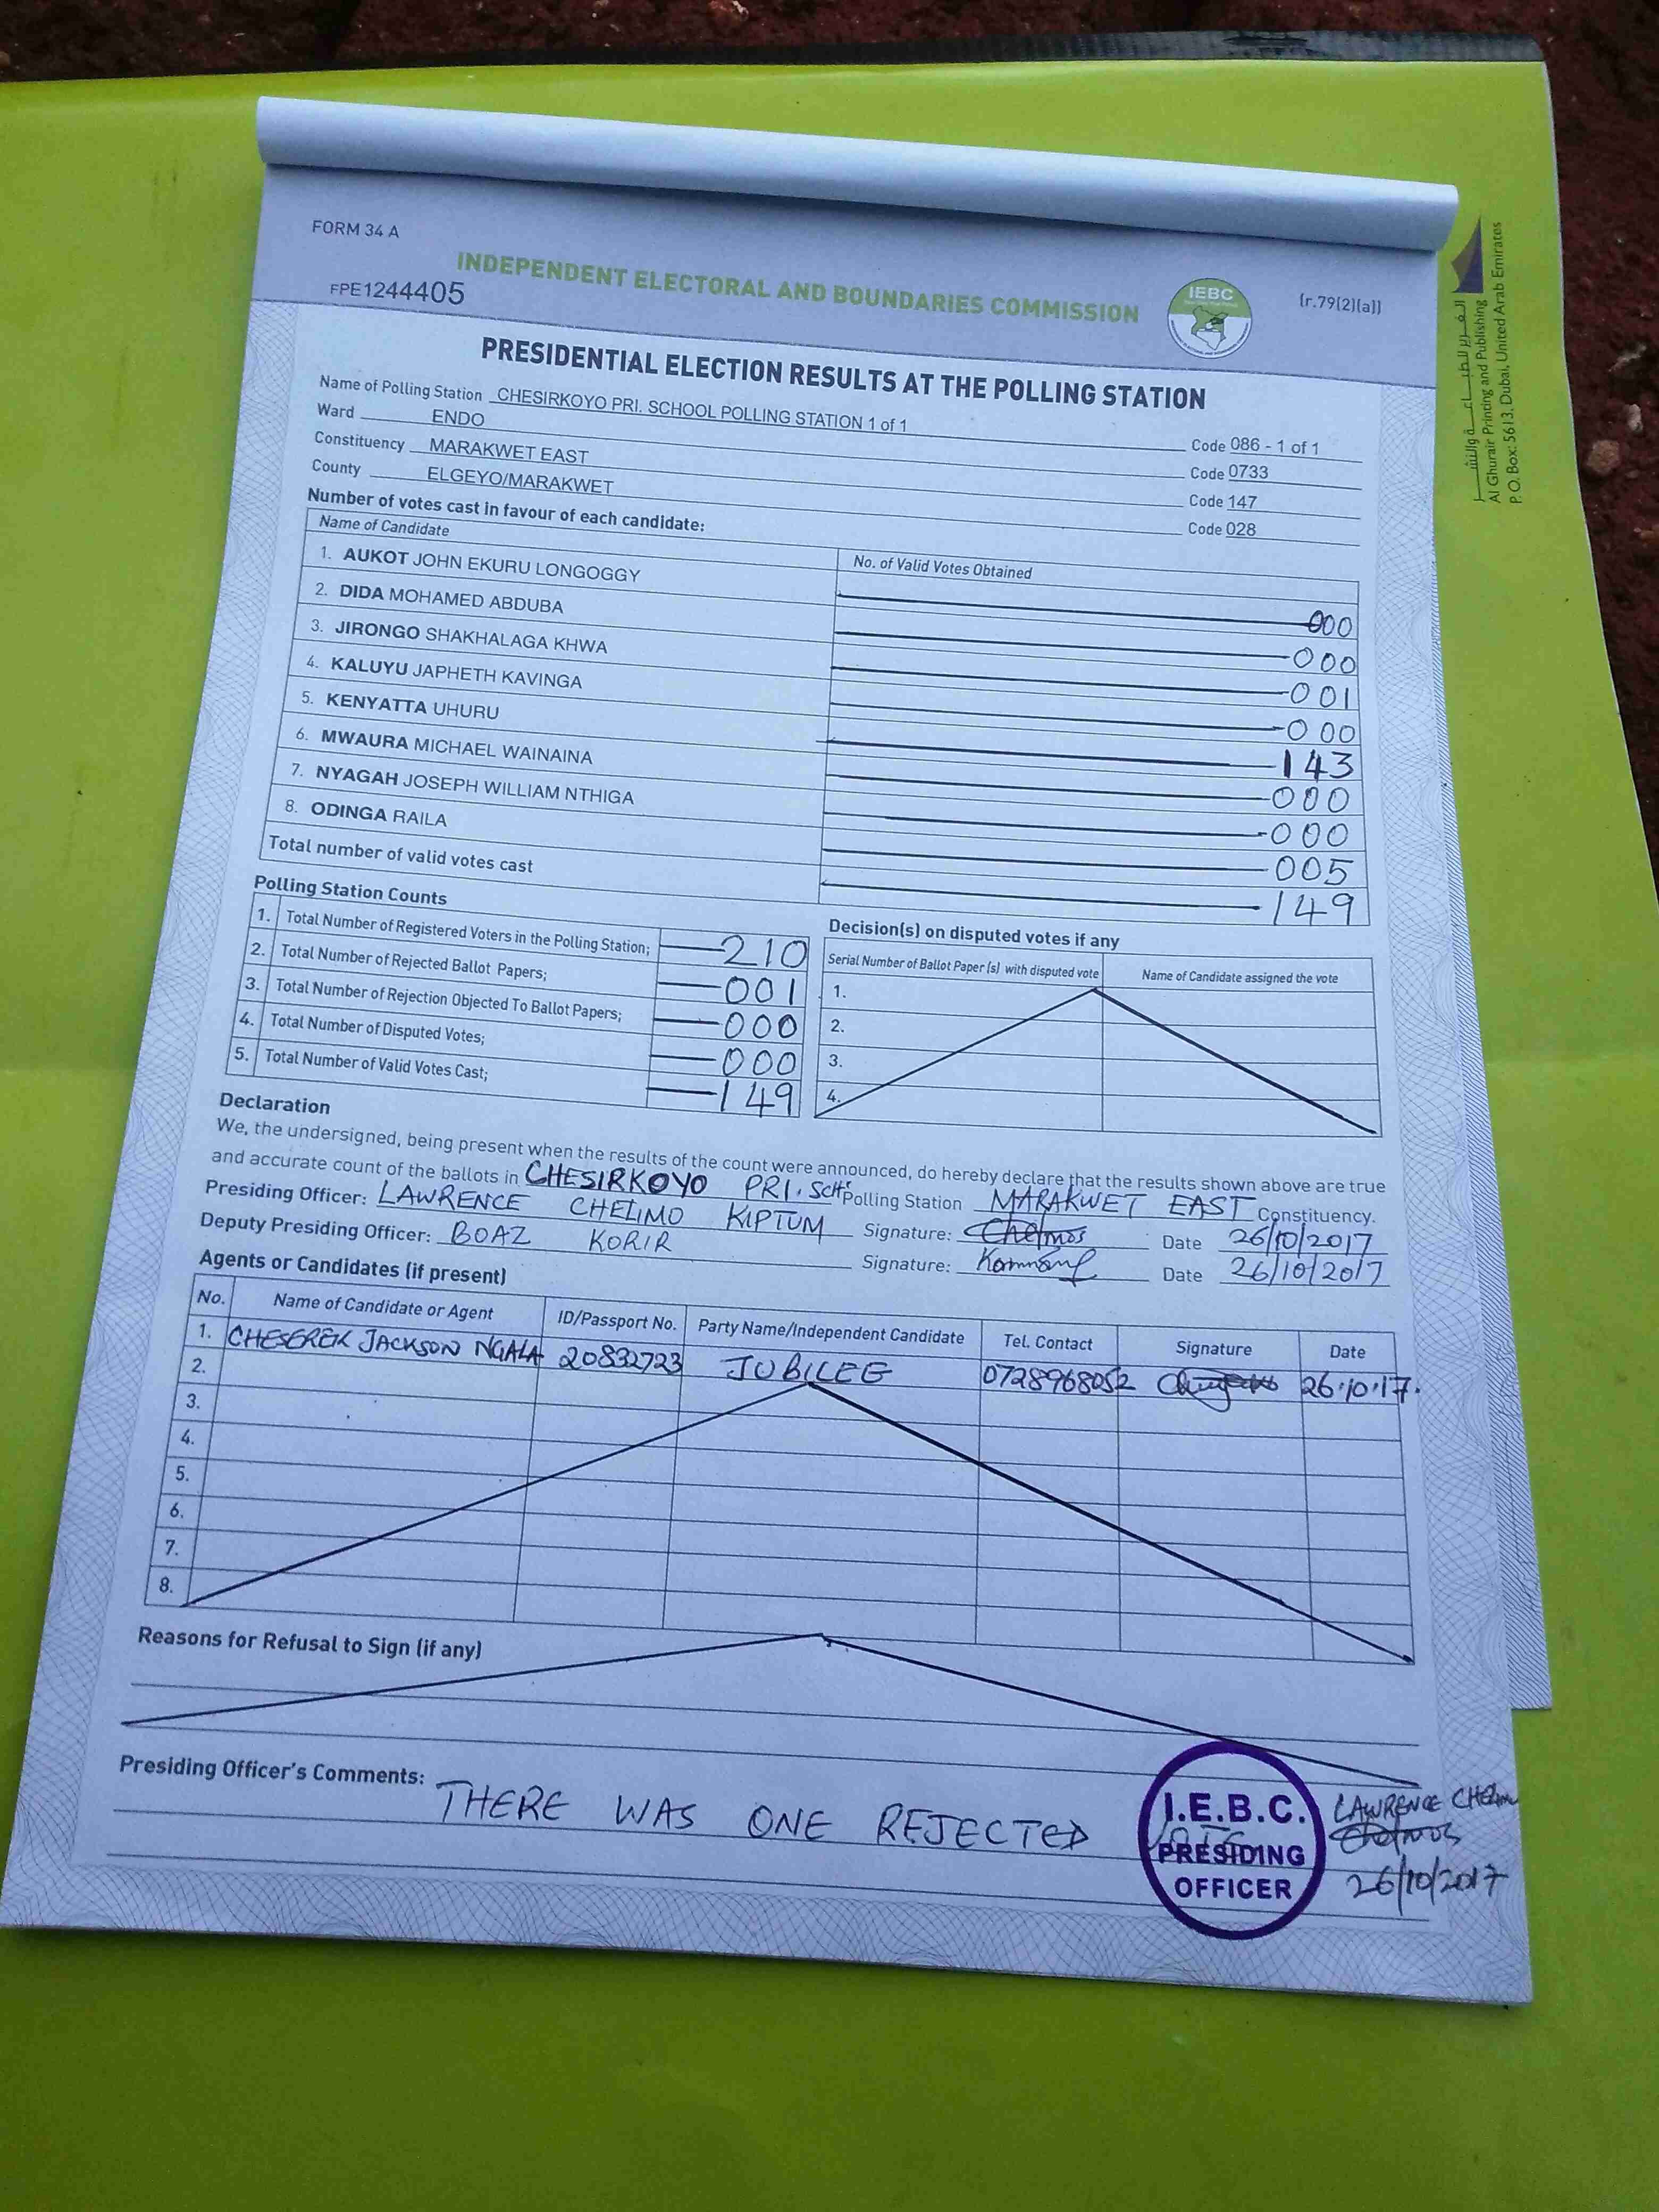 FORM 34 A
INDEPENDENT ELECTORAL AND BOUNDARIES COMMISSION
IEBC
(r.79(2)(a))
FPE1244405
PRESIDENTIAL ELECTION RESULTS AT THE POLLING STATION
Name of Polling Station CHESIRKOYO PRI. SCHOOL POLLING STATION 1 of 1 Code 086 - 1 of 1
Ward ENDO Code 0733
Constituency MARAKWET EAST Code 147
County ELGEYO/MARAKWET Code 028
Number of votes cast in favour of each candidate:
Name of Candidate No. of Valid Votes Obtained
1. AUKOT JOHN EKURU LONGOGGY 000
2. DIDA MOHAMED ABDUBA 000
3. JIRONGO SHAKHALAGA KHWA 001
4. KALUYU JAPHETH KAVINGA 000
5. KENYATTA UHURU 143
6. MWAURA MICHAEL WAINAINA 000
7. NYAGAH JOSEPH WILLIAM NTHIGA 000
8. ODINGA RAILA 005
Total number of valid votes cast 149
Polling Station Counts
1. Total Number of Registered Voters in the Polling Station; 210
2. Total Number of Rejected Ballot Papers; 001
3. Total Number of Rejection Objected To Ballot Papers; 000
4. Total Number of Disputed Votes; 000
5. Total Number of Valid Votes Cast; 149
Decision(s) on disputed votes if any
Serial Number of Ballot Paper (s) with disputed vote Name of Candidate assigned the vote
1.
2.
3.
4.
Declaration
We, the undersigned, being present when the results of the count were announced, do hereby declare that the results shown above are true
and accurate count of the ballots in CHESIRKOYO PRI. SCH Polling Station MARAKWET EAST Constituency.
Presiding Officer: LAWRENCE CHELIMO KIPTUM Signature: Date 26/10/2017
Deputy Presiding Officer: BOAZ KORIR Signature: Date 26/10/2017
Agents or Candidates (if present)
No. Name of Candidate or Agent ID/Passport No. Party Name/Independent Candidate Tel. Contact Signature Date
1. CHESEREK JACKSON NGALA 20832723 JUBILEE 0728968052 26.10.17.
2.
3.
4.
5.
6.
7.
8.
Reasons for Refusal to Sign (if any)
Presiding Officer's Comments: THERE WAS ONE REJECTED
I.E.B.C.
PRESIDING
OFFICER
LAWRENCE
26/10/2017
الغرير للطباعة والنشر
Al Ghurair Printing and Publishing
P. O. Box: 5613, Dubai, United Arab Emirates